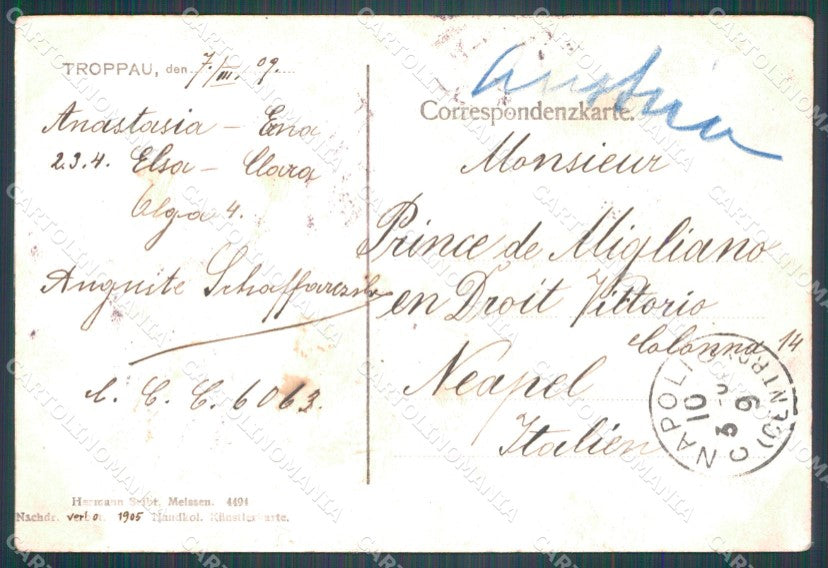 TROPPAU, den 7./III. 09.
Anastasia – Erna
2.3.4. Elsa – Clara
Olga 4.
Auguste Schaffarzik
L. C. C. 6063.
Hermann Seibt, Meissen. 4494
Nachdr. verbo. 1905 Handkol. Künstlerkarte.
Austria
Correspondenzkarte.
Monsieur
Prince de Migliano
en Droit Vittorio
Colonna 14
Neapel
Italien
NAPOLI (CENTRO)
10
3
9
CARTOLINOMANIA